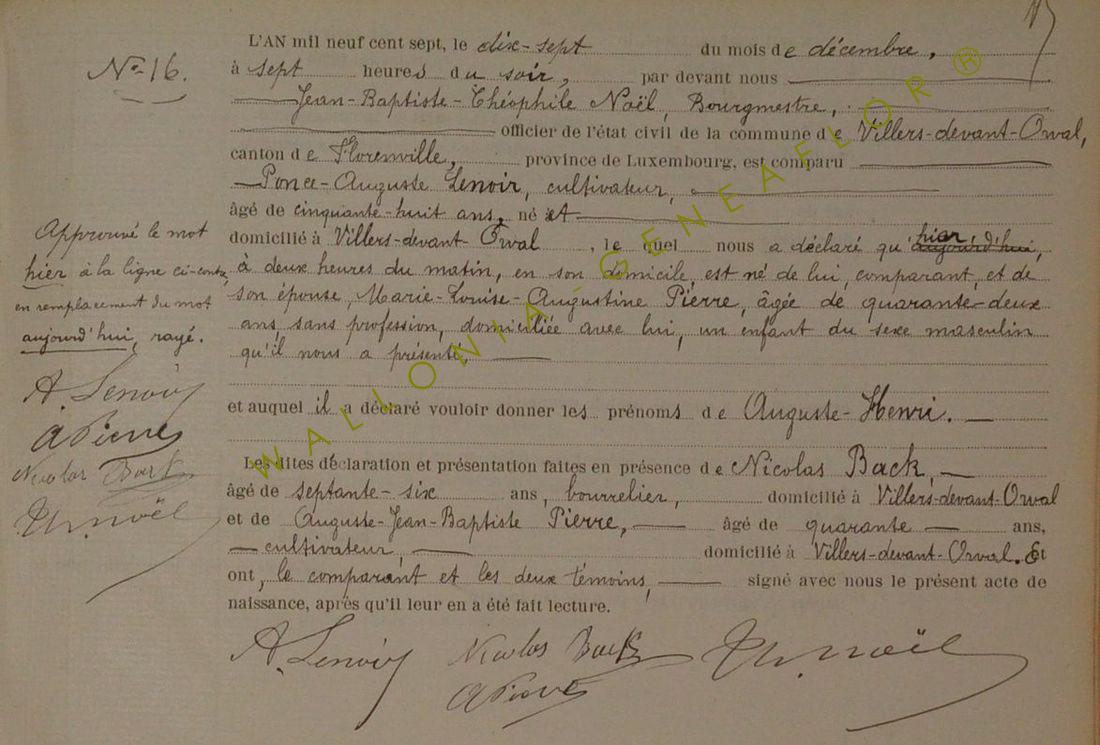 L'AN mil neuf cent sept, le dix-sept du mois de décembre,
No 16.
à sept heures du soir, par devant nous
Jean-Baptiste-Théophile Noël, Bourgmestre,
officier de l'état civil de la commune de Villers-devant-Orval,
canton de Florenville, province de Luxembourg, est comparu
Ponce-Auguste Lenoir, cultivateur,
âgé de cinquante-huit ans, né et
domicilié à Villers-devant-Orval, le quel nous a déclaré qu'aujourd'hui, hier,
à deux heures du matin, en son domicile, est né de lui, comparant, et de
son épouse, Marie-Louise-Augustine Pierre, âgée de quarante-deux
ans, sans profession, domiciliée avec lui, un enfant du sexe masculin
qu'il nous a présenté,
et auquel il a déclaré vouloir donner les prénoms de Auguste-Henri.
Les dites déclaration et présentation faites en présence de Nicolas Back,
âgé de septante-six ans, bourrelier, domicilié à Villers-devant-Orval
et de Auguste-Jean-Baptiste Pierre, âgé de quarante ans,
cultivateur, domicilié à Villers-devant-Orval. Et
ont, le comparant et les deux témoins, signé avec nous le présent acte de
naissance, après qu'il leur en a été fait lecture.
Approuvé le mot
hier à la ligne ci-contre,
en remplacement du mot
aujourd'hui, rayé.
A. Lenoir
A Pierre
Nicolas Back
Th. Noël
A. Lenoir Nicolas Back Th. Noël
A Pierre
WALLONIA GENEAFLOR ®